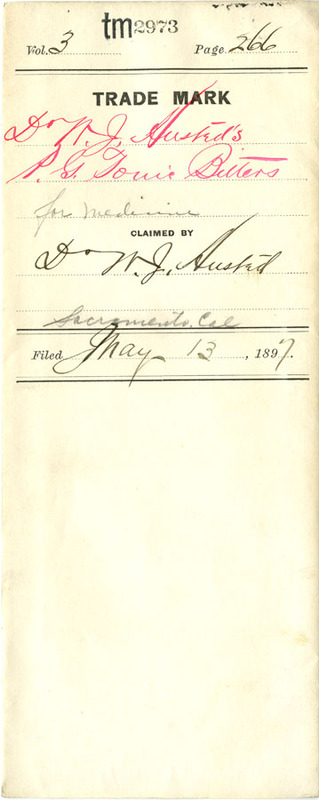 tm2973
Vol. 3 Page 266
TRADE MARK
Dr W. J. Husted's
P. G. Tonic Bitters
for medicine
CLAIMED BY
Dr W. J. Husted
Sacramento, Cal
Filed May 13, 1897.